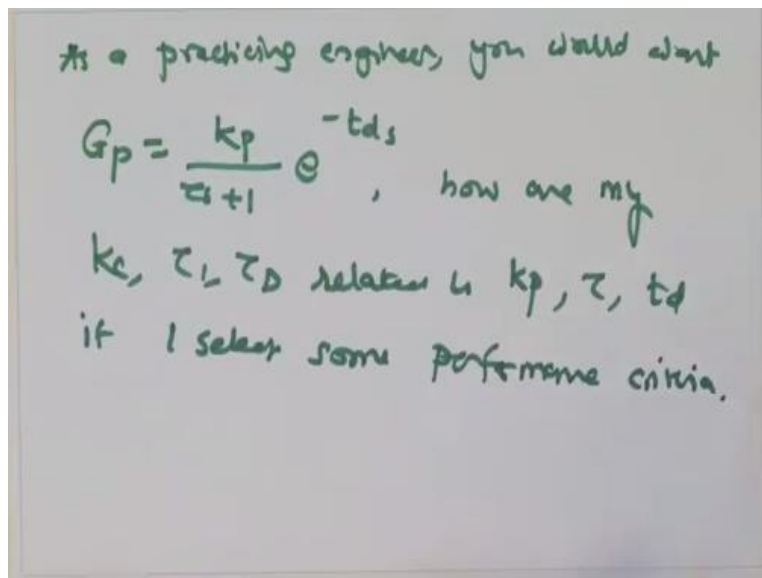 As a practicing engineer, you would want
Gp = kp / τs + 1 e^-tds , how are my
kc, τI, τD related to kp, τ, td
if I select some performance criteria.